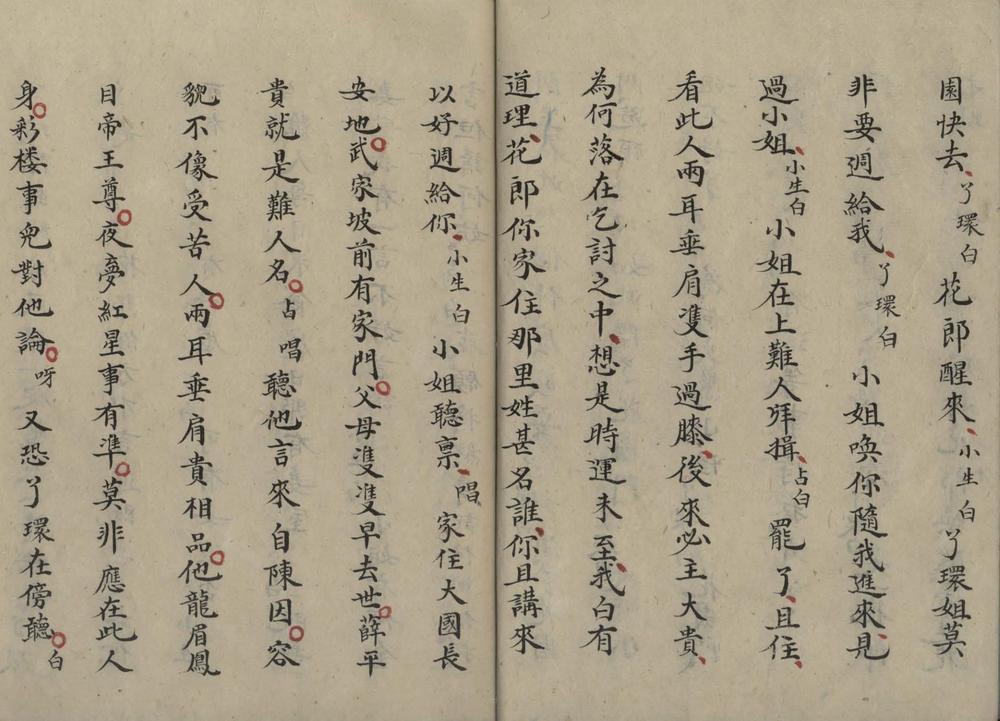 園快去、丫環白花郎醒來、小生白丫環姐莫
非要週給我、丫環白小姐喚你隨我進來見
過小姐、小生白小姐在上難人拜揖、占白罷了、且住、
看此人兩耳垂肩雙手過膝、後來必主大貴、
為何落在乞討之中、想是時運未至、我白有
道理、花郎你家住那里姓甚名誰、你且講來
以好週給你、小生白小姐聽禀、唱家住大國長
安地○武家坡前有家門○父母雙雙早去世○薛平
貴就是難人名○占唱聽他言來自陳因○容
貌不像受苦人○兩耳垂肩貴相品○他龍眉鳳
目帝王尊○夜夢紅星事有準○莫非應在此人
身○彩楼事兒對他論○呀又恐丫環在傍聽○白